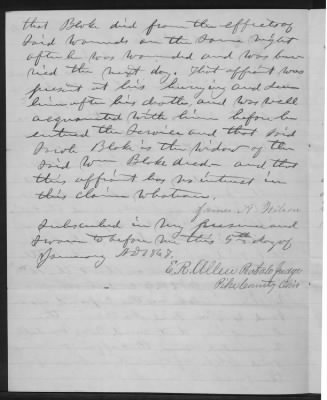 that Bloke died from the effects of
said wounds on the same night
after he was wounded and was bur
ried the next day. that affiant was
present at his burying and seen
him after his death, and was well
acquainted with him before he
entered the service and that said
Bloke is the widow of the
said Wm Bloke dec'd — and that
this affiant has no interest in
this claim whatever.
James A. Wilson
Subscribed in my presence and
sworn to before me this 5th day of
January AD 1868.
E. R. Allen Probate Judge
Pike County Ohio